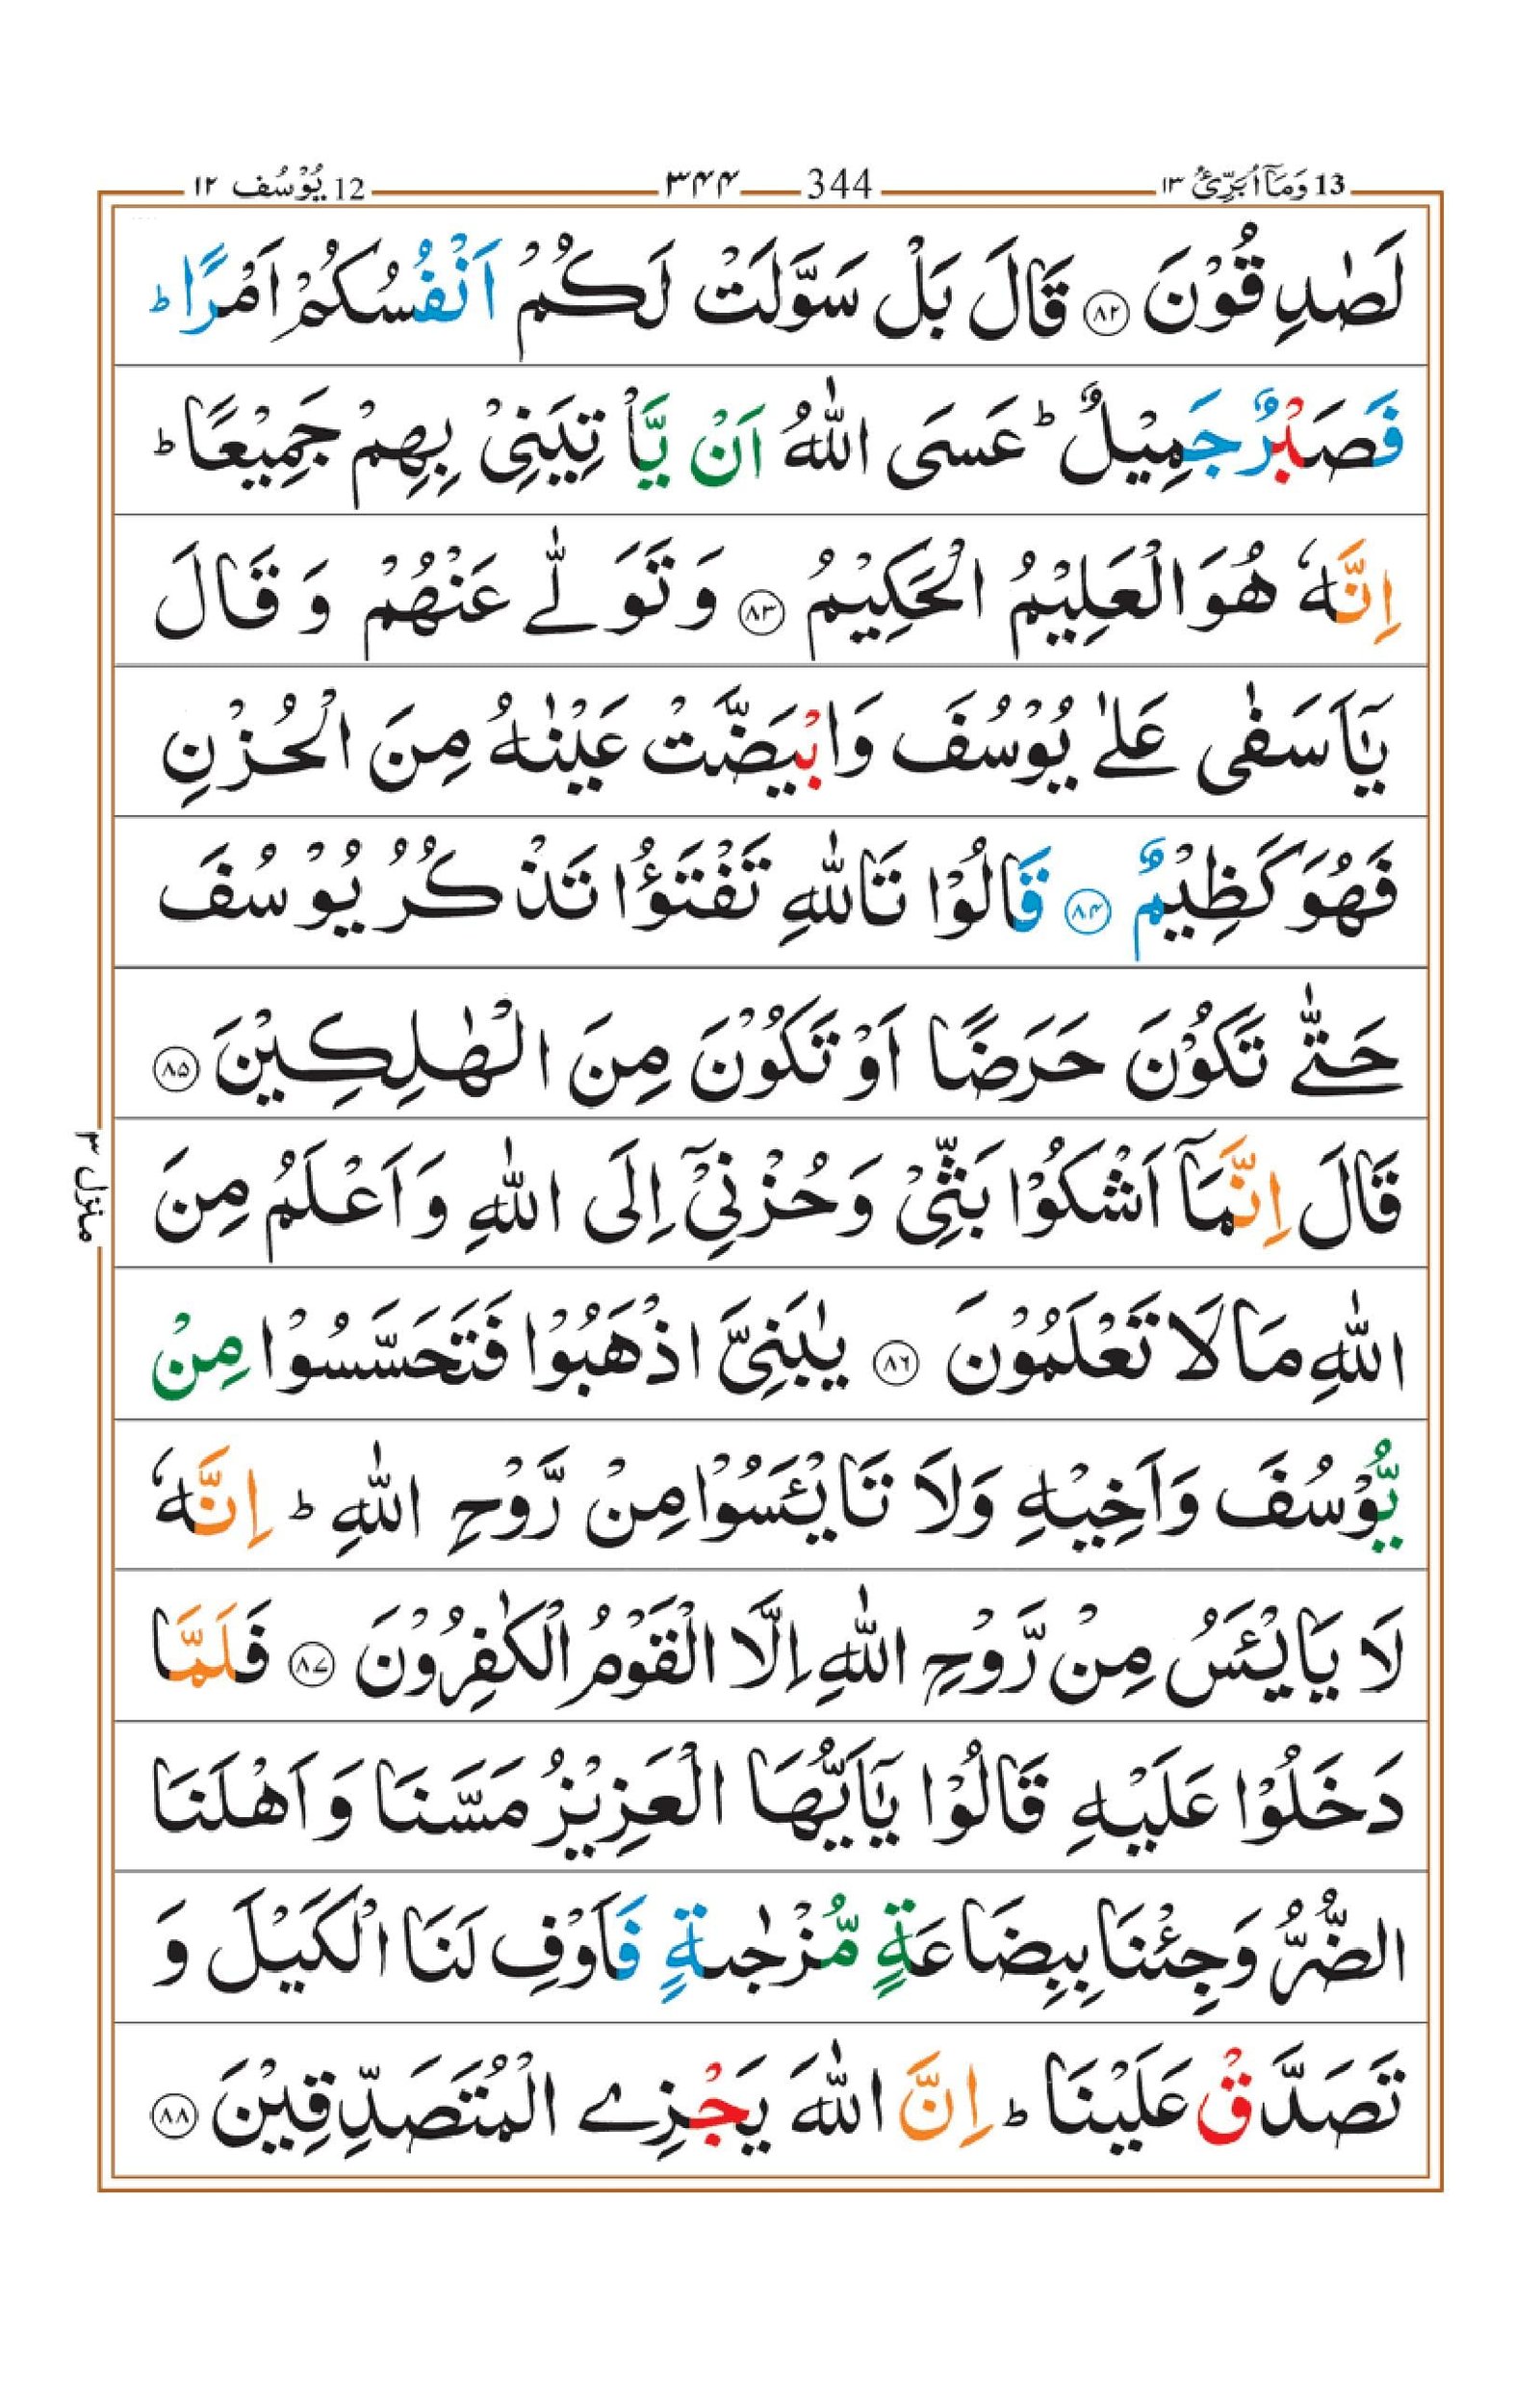 13 وَمَآ اُبَرِّئُ ١٣ 344 ٣٤٤ 12 يُوْسُف ١٢
لَصٰدِقُوْنَ ﴿۸۲﴾ قَالَ بَلْ سَوَّلَتْ لَكُمْ اَنْفُسُكُمْ اَمْرًا ؕ
فَصَبْرٌ جَمِيْلٌ ؕ عَسَى اللّٰهُ اَنْ يَّاْتِيَنِيْ بِهِمْ جَمِيْعًا ؕ
اِنَّهٗ هُوَ الْعَلِيْمُ الْحَكِيْمُ ﴿۸۳﴾ وَ تَوَلّٰى عَنْهُمْ وَ قَالَ
يٰۤاَسَفٰى عَلٰى يُوْسُفَ وَابْيَضَّتْ عَيْنٰهُ مِنَ الْحُزْنِ
فَهُوَ كَظِيْمٌ ﴿۸۴﴾ قَالُوْا تَاللّٰهِ تَفْتَؤُا تَذْكُرُ يُوْسُفَ
حَتّٰى تَكُوْنَ حَرَضًا اَوْ تَكُوْنَ مِنَ الْهٰلِكِيْنَ ﴿۸۵﴾
قَالَ اِنَّمَاۤ اَشْكُوْا بَثِّيْ وَحُزْنِيْۤ اِلَى اللّٰهِ وَاَعْلَمُ مِنَ
اللّٰهِ مَا لَا تَعْلَمُوْنَ ﴿۸۶﴾ يٰبَنِيَّ اذْهَبُوْا فَتَحَسَّسُوْا مِنْ
يُّوْسُفَ وَاَخِيْهِ وَلَا تَايْـَٔسُوْا مِنْ رَّوْحِ اللّٰهِ ؕ اِنَّهٗ
لَا يَايْـَٔسُ مِنْ رَّوْحِ اللّٰهِ اِلَّا الْقَوْمُ الْكٰفِرُوْنَ ﴿۸۷﴾ فَلَمَّا
دَخَلُوْا عَلَيْهِ قَالُوْا يٰۤاَيُّهَا الْعَزِيْزُ مَسَّنَا وَاَهْلَنَا
الضُّرُّ وَجِئْنَا بِبِضَاعَةٍ مُّزْجٰىةٍ فَاَوْفِ لَنَا الْكَيْلَ وَ
تَصَدَّقْ عَلَيْنَا ؕ اِنَّ اللّٰهَ يَجْزِي الْمُتَصَدِّقِيْنَ ﴿۸۸﴾
منزل ٣